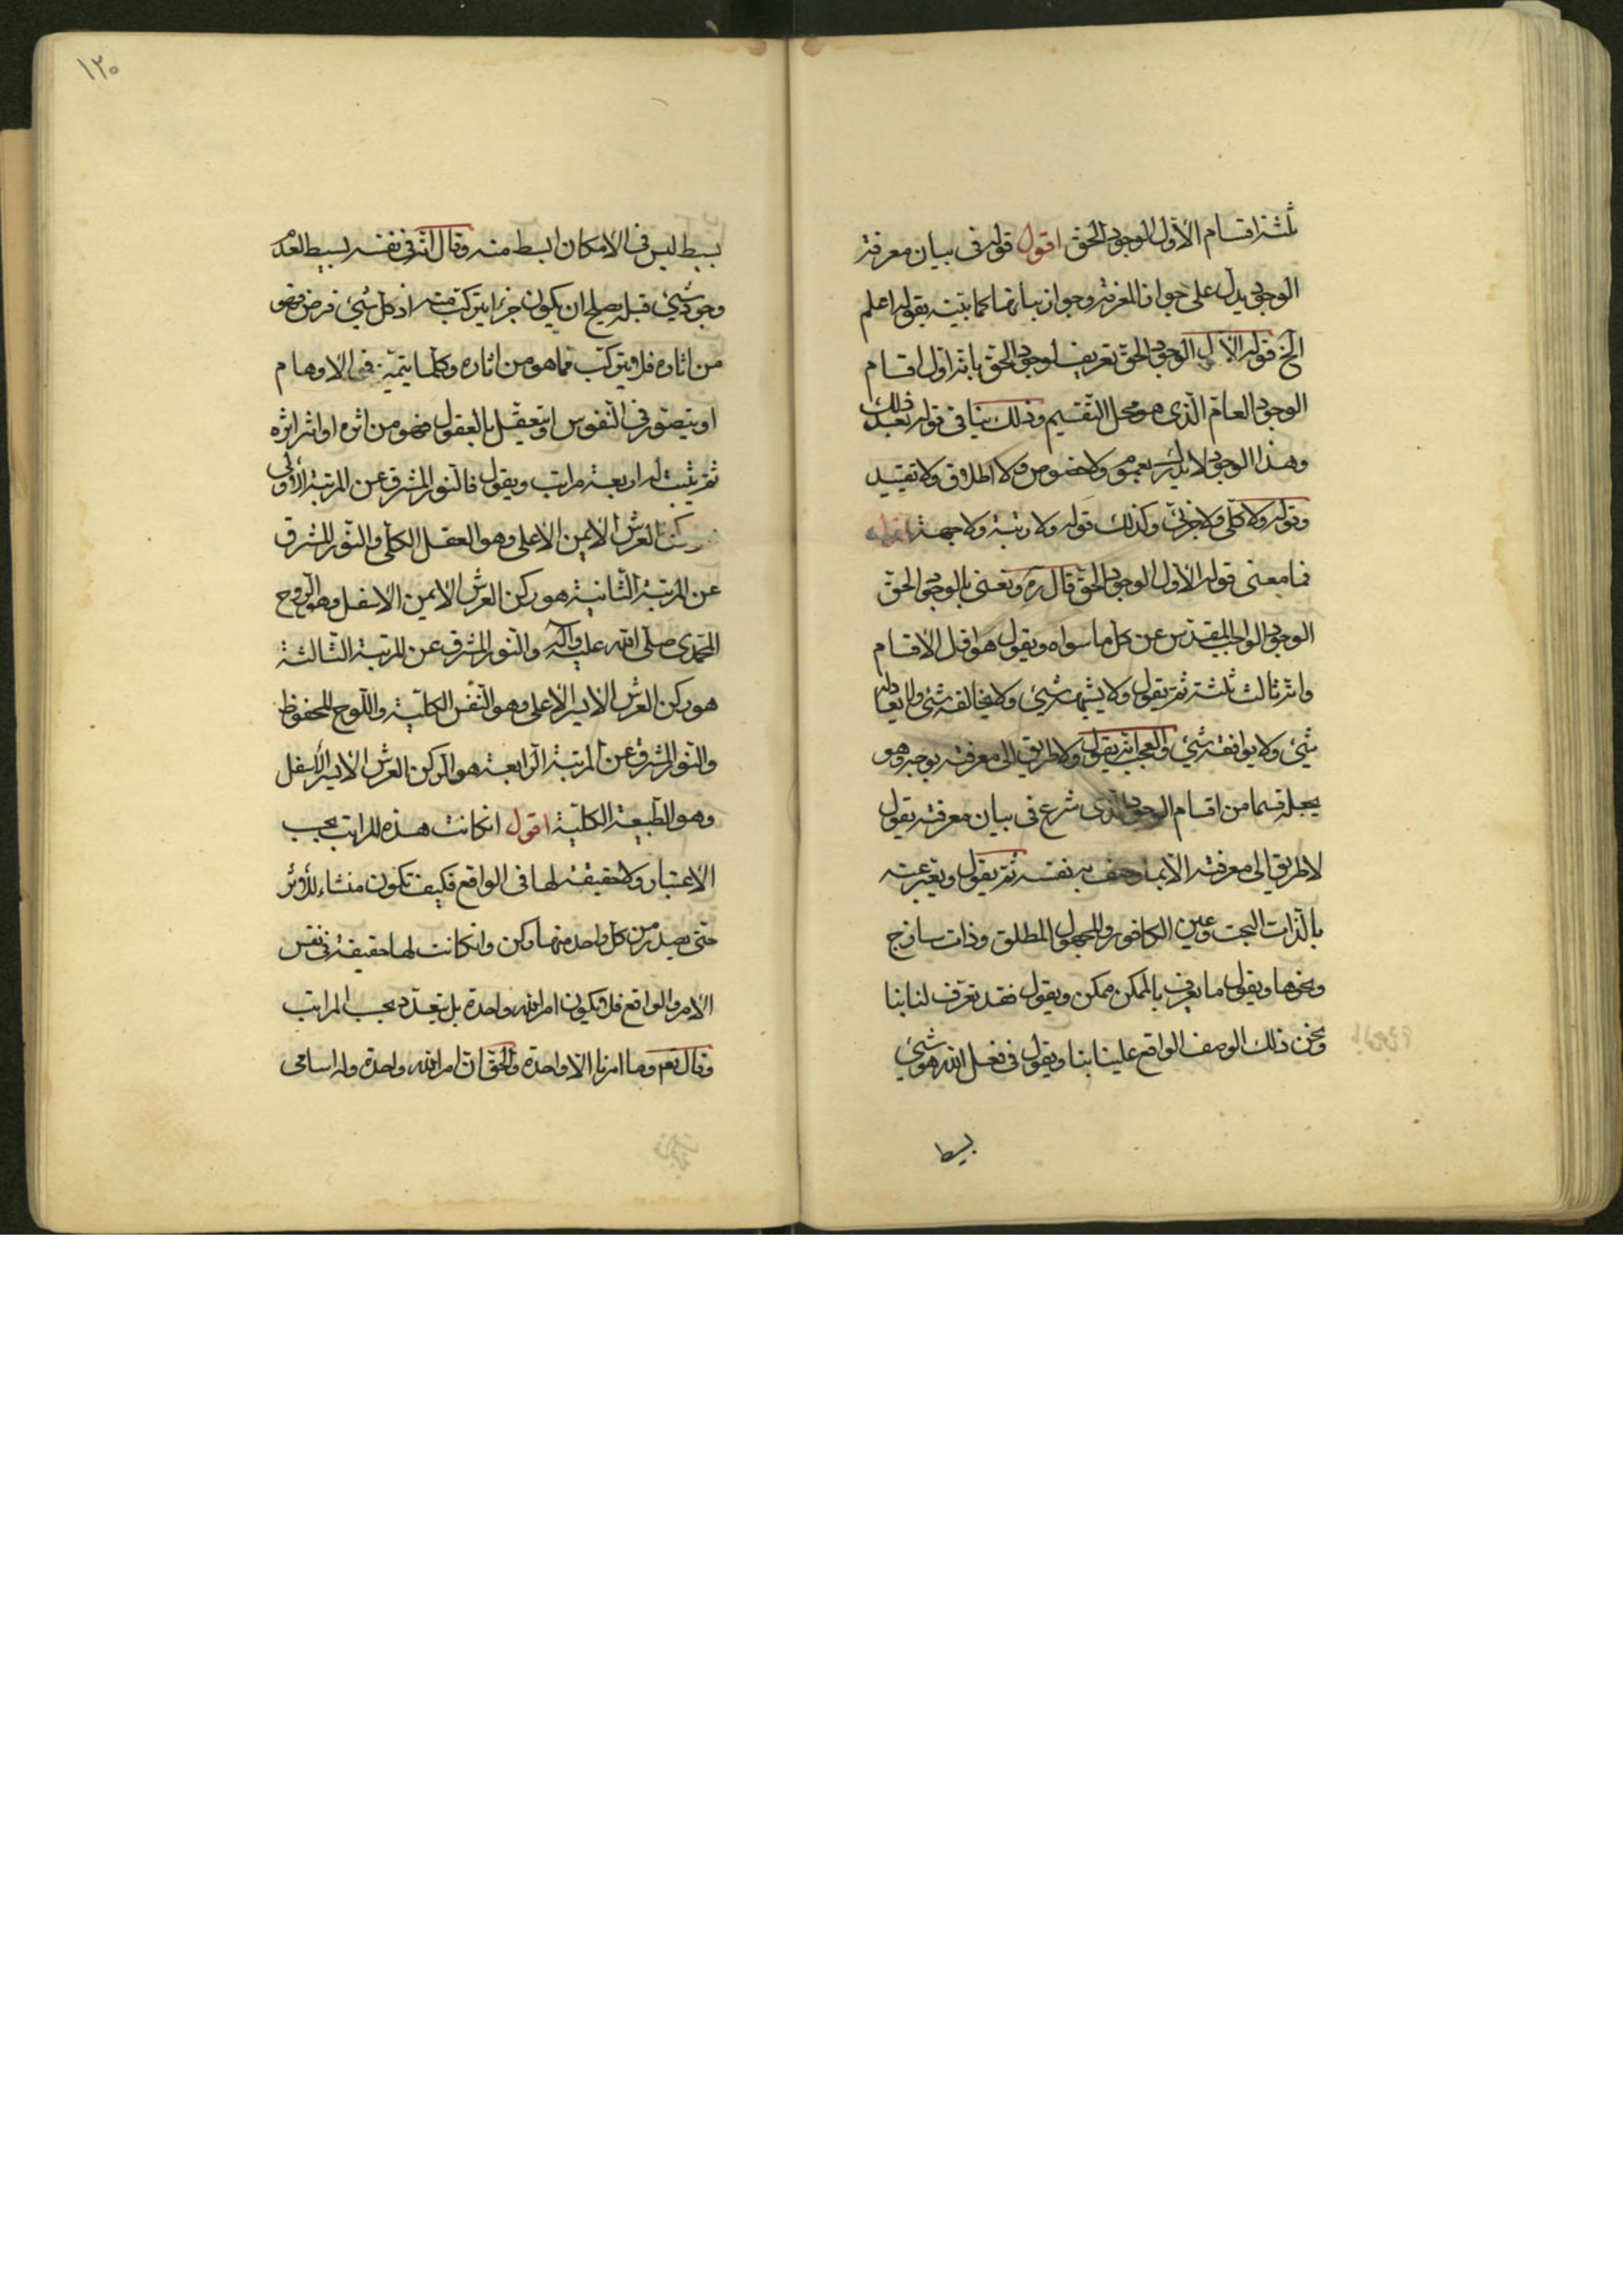 ثلثة اقسام الأوّل الوجود الحق اقول قوله فى بيان معرفة
الوجود يدل على جواز المعرفة وجواز بيانها كما بيّنه بقوله اعلم
الخ فقوله الأول الوجود الحق تعريف لوجود الحق بانه اول اقسام
الوجود العام الّذى هو محل التقسيم وذلك ينافى قوله بعد ذلك
وهذا الوجود لا يدرك بعموم ولا خصوص ولا اطلاق ولا تقييد
وقوله ولا كلّى ولا جزئى وكذلك قوله ولا رتبة ولا جهة
فما معنى قوله الأول الوجود الحق قال ره ونعنى بالوجود الحق
الوجود الواجب المقدس عن كل ما سواه ويقول هو اول الاقسام
وانه ثالث ثلثة ثم يقول ولا يشبهه شئ ولا يخالفه شئ ولا يعادله
شئ ولا يوافقه شئ والعجب انه يقول ولا طريق الى معرفته بوجه وهو
يجعله قسما من اقسام الوجود الذى شرع فى بيان معرفته يقول
لا طريق الى معرفته الا بما وصف به نفسه ثم يقول ونعبر عنه
بالذات البحت وعين الكافور والمجهول المطلق وذات ساذج
ونحوها ويقول ما يعرف بالممكن ممكن ويقول فقد تعرّف لنا بنا
ونحن ذلك الوصف الواقع علينا بنا ويقول فى فعل الله هو شئ
بسيط
١٢٠
بسيط ليس فى الامكان ابسط منه وقال انه فى نفسه بسيط لعدم
وجود شئ قبله يصلح ان يكون جزءا يتركب منه اذ كل شئ فرض فهو
من اثاره فلا يتركب مما هو من اثاره وكلما يتميّز فى الاوهام
او يتصور فى النفوس او يتعقّل بالعقول فهو من اثره او اثر اثره
ثم يثبت له اربعة مراتب ويقول فالنور المشرق عن المرتبة الاولى
ركن العرش الايمن الاعلى وهو العقل الكلّى والنّور المشرق
عن المرتبة الثانية هو ركن العرش الايمن الاسفل وهو الروح
المحمّدى صلى الله عليه وآله والنور المشرق عن المرتبة الثالثة
هو ركن العرش الايسر الاعلى وهو النّفس الكليّة واللّوح المحفوظ
والنور المشرق عن المرتبة الرابعة هو الركن العرش الايسر الأسفل
وهو الطّبيعة الكليّة اقول انكانت هذه المراتب بحسب
الاعتبار ولا حقيقة لها فى الواقع فكيف تكون منشاء للأثر
حتى يصدر من كل واحد منها ركن وانكانت لها حقيقة فى نفس
الامر والواقع فلا يكون امر الله واحدة بل يتعدّد بحسب المراتب
وقال نعم وما امرنا الّا واحدة والحق ان امر الله واحدة وله اسامى